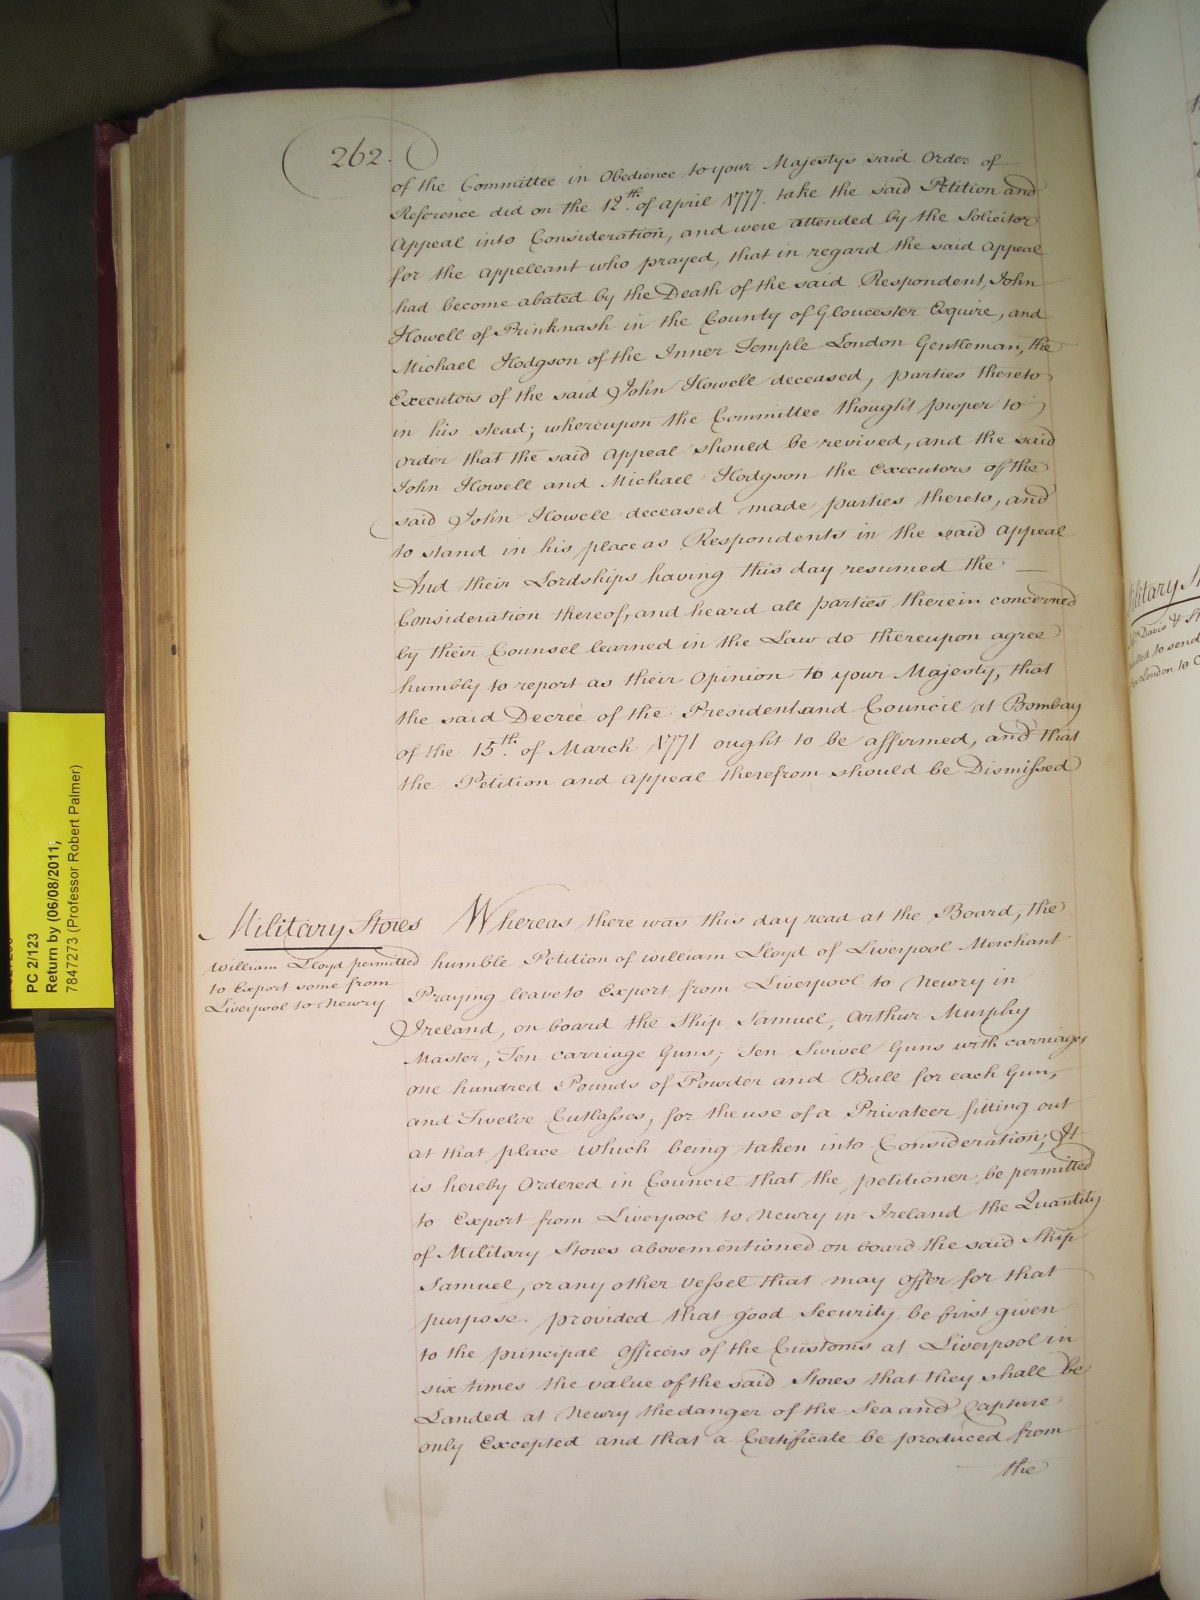 262.
of the Committee in Obedience to your Majestys said Order of
Reference did on the 12th. of April 1777. take the said Petition and
Appeal into Consideration, and were attended by the Solicitor
for the Appellant who prayed, that in regard the said Appeal
had become abated by the Death of the said Respondent, John
Howell of Prinknash in the County of Gloucester Esquire, and
Michael Hodgson of the Inner Temple London Gentleman, the
Executors of the said John Howell deceased, parties thereto
in his stead; whereupon the Committee thought proper to
order that the said Appeal should be revived, and the said
John Howell and Michael Hodgson the Executors of the
said John Howell deceased made parties thereto, and
to stand in his place as Respondents in the said Appeal
And their Lordships having this day resumed the
Consideration thereof, and heard all parties therein concerned
by their Counsel learned in the Law do thereupon agree
humbly to report as their Opinion to your Majesty, that
the said Decree of the President and Council at Bombay
of the 15th. of March 1771 ought to be affirmed, and that
the Petition and Appeal therefrom should be Dismissed
Military Stores
William Lloyd permitted
to Export some from
Liverpool to Newry
Whereas there was this day read at the Board, the
humble Petition of William Lloyd of Liverpool Merchant
Praying leave to Export from Liverpool to Newry in
Ireland, on board the Ship Samuel, Arthur Murphy
Master, Ten carriage Guns; Ten Swivel Guns with carriages
one hundred Pounds of Powder and Ball for each Gun,
and Twelve Cutlasses, for the use of a Privateer fitting out
at that place Which being taken into Consideration; It
is hereby Ordered in Council that the petitioner be permitted
to Export from Liverpool to Newry in Ireland the Quantity
of Military Stores abovementioned on board the said Ship
Samuel, or any other Vessel that may Offer for that
purpose. provided that good Security be first given
to the principal Officers of the Customs at Liverpool in
six times the value of the said Stores that they shall be
Landed at Newry the danger of the Sea and Capture
only Excepted and that a Certificate be produced from
the
PC 2/123
Return by (06/08/2011;
7847273 (Professor Robert Palmer)